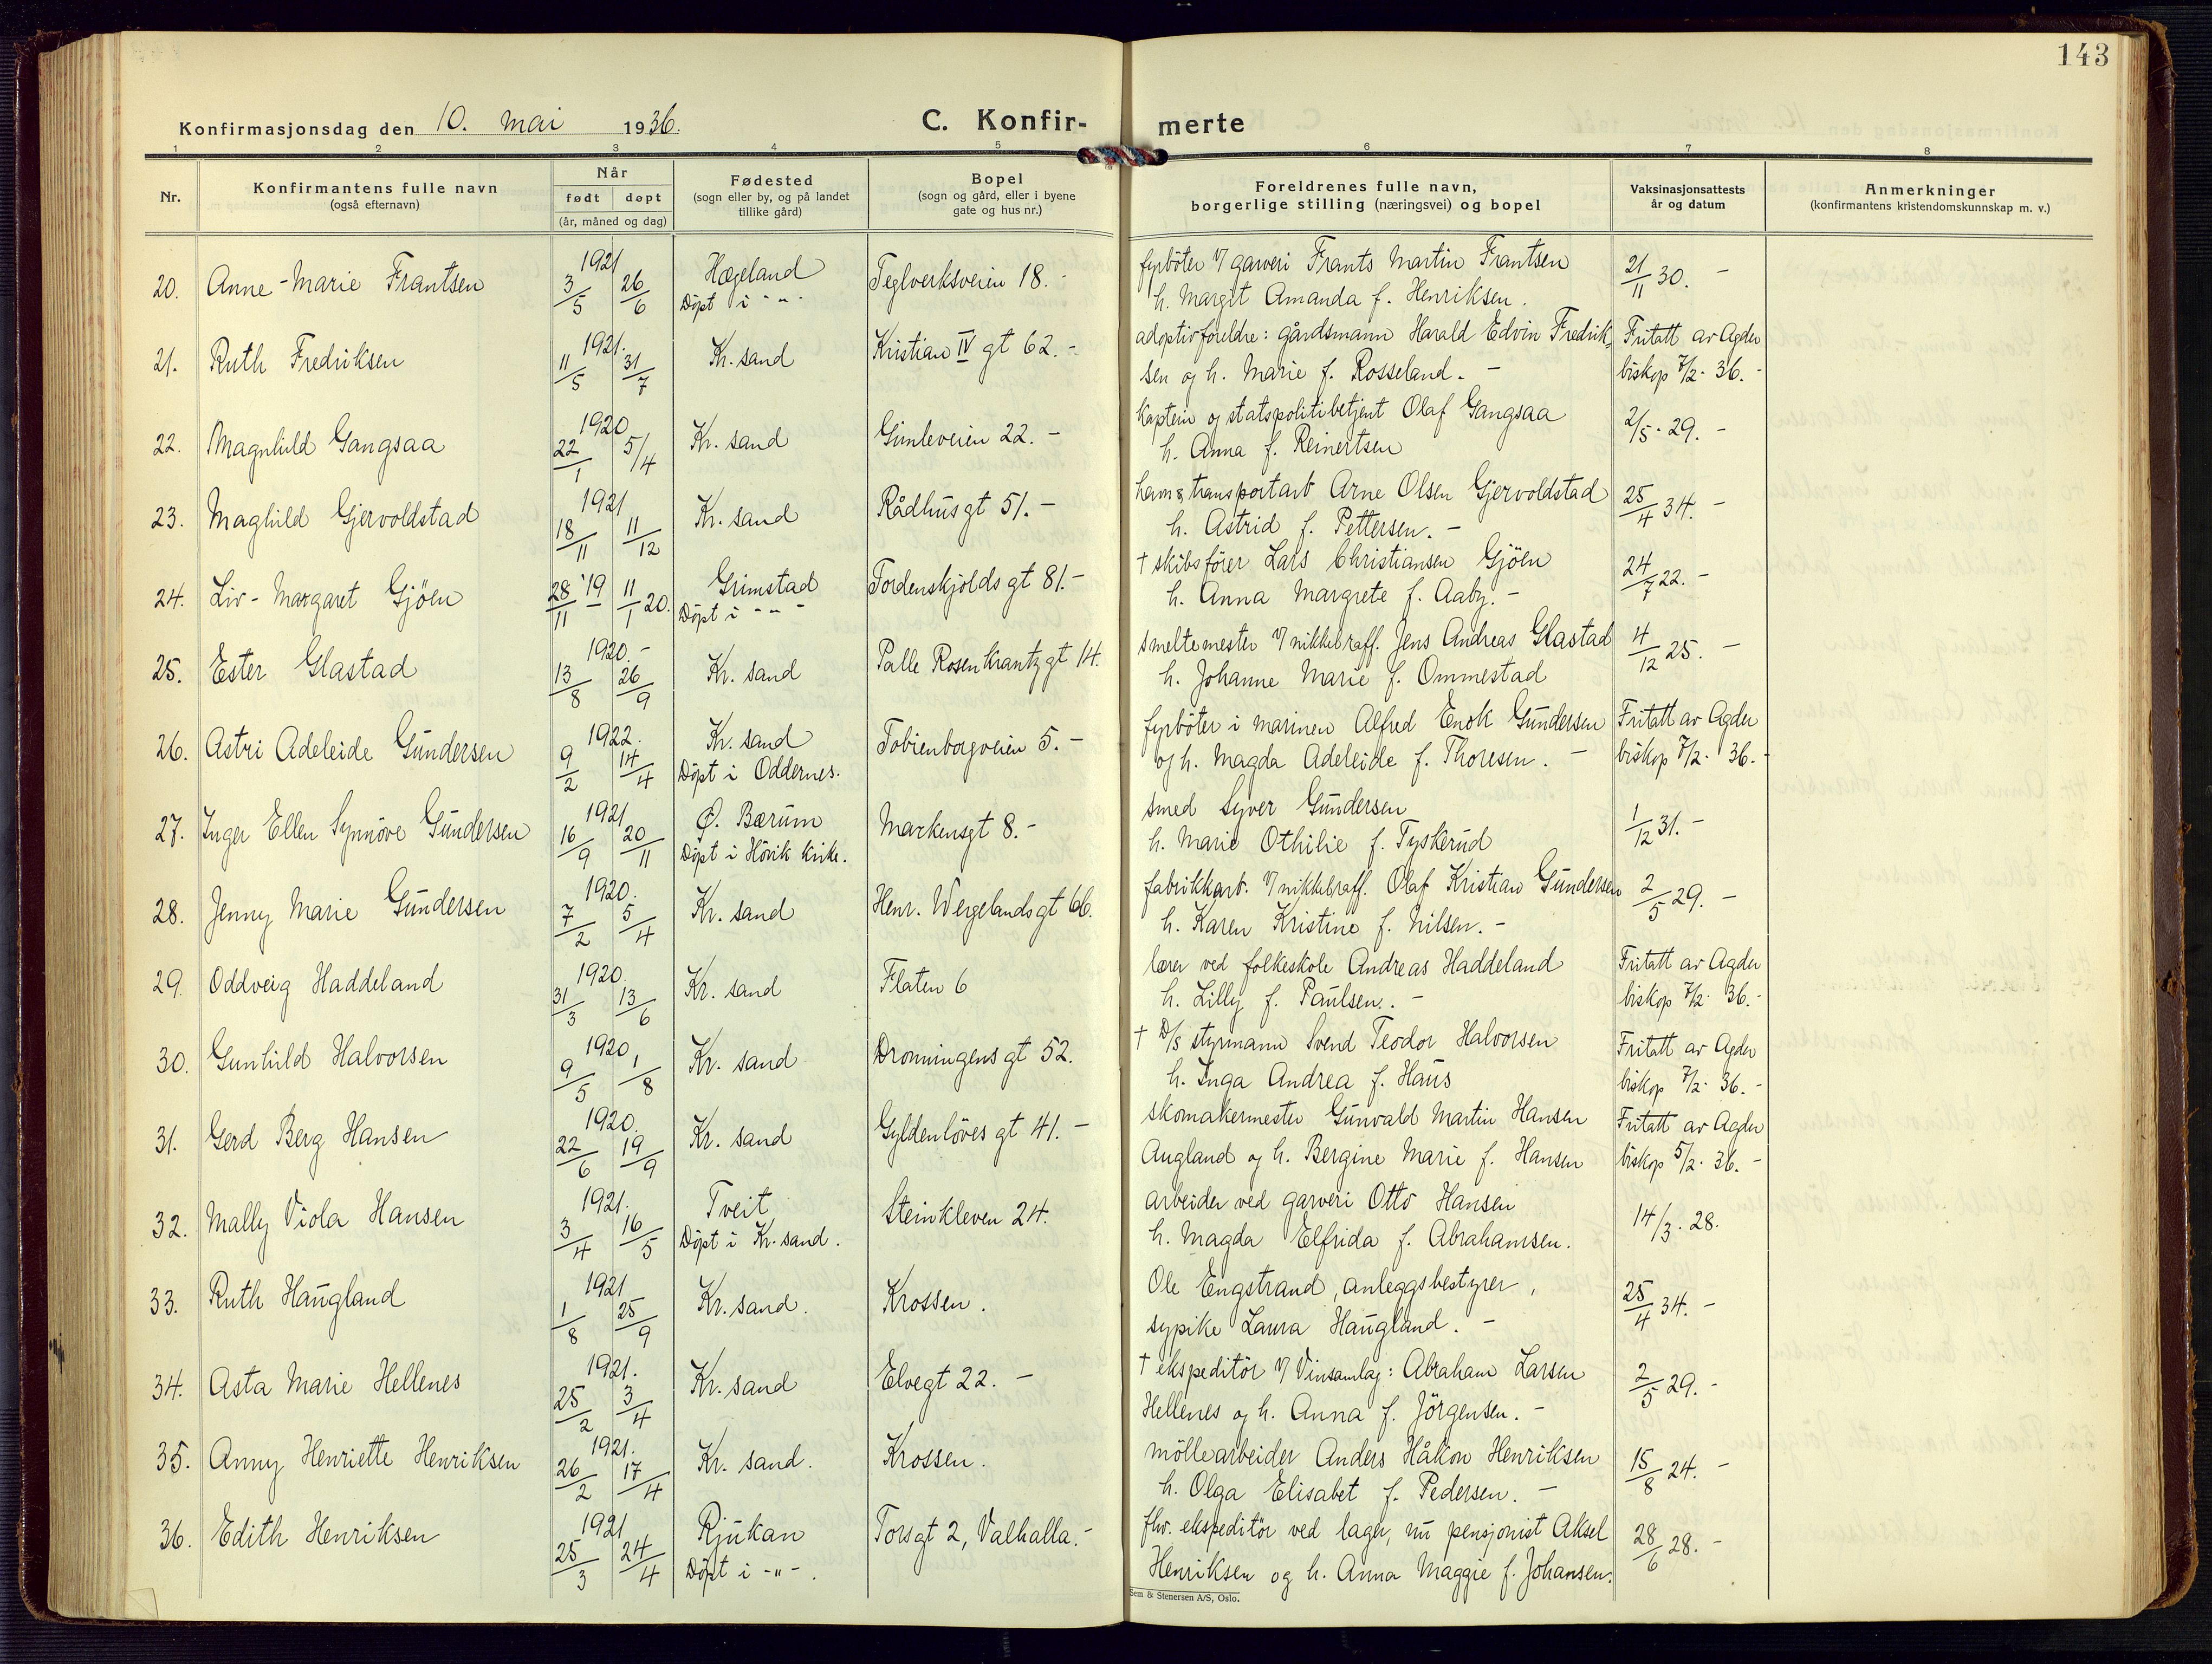 143
Konfirmasjonsdag den 10. mai 1936.
C. Konfir-merte
1 2 3 4 5 6 7 8
Nr.
Konfirmantens fulle navn
(også efternavn)
Når
født døpt
(år, måned og dag)
Fødested
(sogn eller by, og på landet
tillike gård)
Bopel
(sogn og gård, eller i byene
gate og hus nr.)
Foreldrenes fulle navn,
borgerlige stilling (næringsvei) og bopel
Vaksinasjonsattests
år og datum
Anmerkninger
(konfirmantens kristendomskunnskap m. v.)
20. Anne-Marie Frantsen 1921 3/5 26/6 Hægeland Teglverksveien 18.- fyrböter v/ garveri Frants Martin Frantsen 21/11 30. -
Döpt i -"- h. Margit Amanda f. Henriksen.
21. Ruth Fredriksen 1921. 11/5 31/7 Kr. sand Kristian IV gt 62.- adoptivforeldre: gårdsmann Harald Edvin Fredrik- Fritatt av Agder
sen og h. Marie f. Rosseland. - biskop 7/2. 36.-
22. Magnhild Gangsaa 1920 22/1 5/4 Kr. sand Gimleveien 22.- Kaptein og statspolitibetjent Olaf Gangsaa 2/5. 29. -
h. Anna f. Reinertsen
23. Maghild Gjervoldstad 1921 18/11 11/12 Kr. sand Rådhusgt 51.- transportarb Arne Olsen Gjervoldstad 25/4 34. -
h. Astrid f. Pettersen. -
24. Liv-Margaret Gjöen 28/11 '19 11/1 20. Grimstad Tordenskjolds gt 81.- † skibsförer Lars Christiansen Gjöen 24/7 22. -
Döpt i -"- h. Anna Margrete f. Aaby. -
25. Ester Glastad 1920.- 13/8 26/9 Kr. sand Palle Rosenkrantzgt 14. smeltemester v/ nikkelraff. Jens Andreas Glastad 4/12 25. -
h. Johanne Marie f. Ommestad
26. Astri Adeleide Gundersen 1922. 9/2 14/4 Kr. sand Tobienborgveien 5.- fyrböter i marinen Alfred Enok Gundersen Fritatt av Agder
Döpt i Oddernes. og h. Magda Adeleide f. Thoresen. - biskop 7/2. 36.-
27. Inger Ellen Synnöve Gundersen 1921 16/9 20/11 Ö. Bærum Markensgt 8.- smed Syver Gundersen 1/12 31.-
Döpt i Hövik kirke. h. Marie Othilie f. Tyskerud
28. Jenny Marie Gundersen 1920. 7/2 5/4 Kr. sand Henr. Wergelandsgt 66. fabrikkarb. v/ nikkelraff. Olaf Kristian Gundersen 2/5 29. -
h. Karen Kristine f. Nilsen. -
29. Oddveig Haddeland 1920. 31/3 13/6 Kr. sand Flaten 6 lærer ved folkeskole Andreas Haddeland Fritatt av Agder
h. Lilly f. Paulsen. - biskop 7/2. 36.-
30. Gunhild Halvorsen 1920 9/5 1/8 Kr. sand Dronningens gt 52. † D/S styrmann Svend Teodor Halvorsen Fritatt av Agder
h. Inga Andrea f. Haus biskop 7/2. 36.-
31. Gerd Berg Hansen 1920. 22/6 19/9 Kr. sand Gyldenlöves gt 41.- skomakermester Gunvald Martin Hansen Fritatt av Agder
Augland og h. Bergine Marie f. Hansen biskop 5/2. 36.-
32. Mally Viola Hansen 1921. 3/4 16/5 Tveit Steinkleven 24. arbeider ved garveri Otto Hansen 14/3. 28.
Döpt i Kr. sand. h. Magda Elfrida f. Abrahamsen.
33. Ruth Haugland 1921 1/8 25/9 Kr. sand. Krossen. Ole Engstrand, anleggsbestyrer, 25/4 34. -
sypike Laura Haugland. -
34. Asta Marie Hellenes 1921. 25/2 3/4 Kr. sand Elvegt 22. - † ekspeditör v/ Vinsamlag: Abraham Larsen 2/5 29.-
Hellenes og h. Anna f. Jörgensen. -
35. Anny Henriette Henriksen 1921. 26/2 17/4 Kr. sand. Krossen. möllearbeider Anders Håkon Henriksen 15/8 24. -
h. Olga Elisabet f. Pedersen. -
36. Edith Henriksen 1921 25/3 24/4 Rjukan Torsgt 2, Valhalla.- fhv. ekspeditör ved lager, nu pensjonist Aksel 28/6 28. -
Döpt i -"-. Henriksen og h. Anna Maggie f. Johansen.
Sem & Stenersen A/S, Oslo.